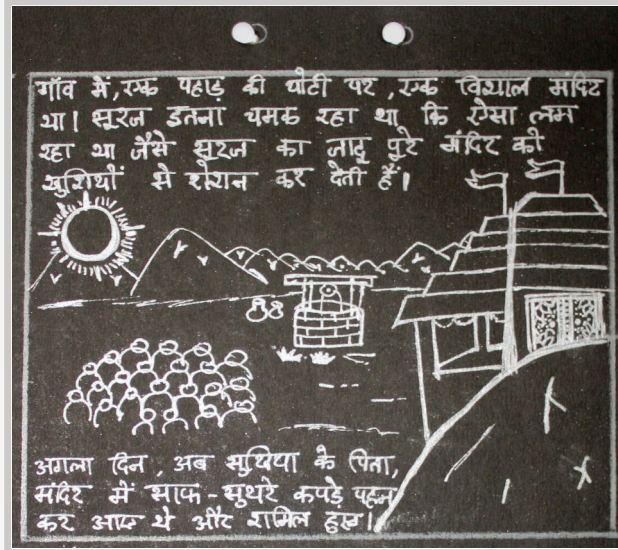 गाँव में, एक पहाड़ की चोटी पर, एक विशाल मंदिर
था। सूरज इतना चमक रहा था कि ऐसा लग
रहा था जैसे सूरज का जादू पूरे मंदिर को
खुशियों से रोशन कर देती हैं।
अगला दिन, अब सुखिया के पिता,
मंदिर में साफ-सुथरे कपड़े पहन
कर आए थे और शामिल हुए।